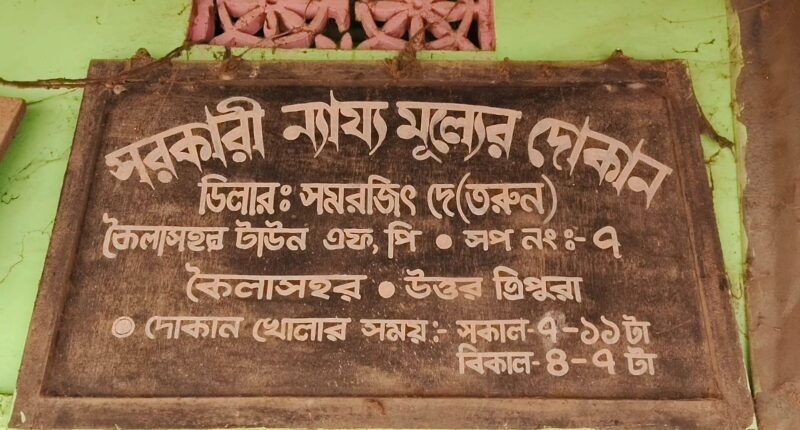 সরকারী ন্যায্য মূল্যের দোকান
ডিলারঃ সমরজিৎ দে(তরুন)
কৈলাসহর টাউন এফ, পি • সপ নং ঃ- ৭
কৈলাসহর • উত্তর ত্রিপুরা
দোকান খোলার সময় ঃ- সকাল-৭-১১ টা
বিকাল-৪-৭ টা